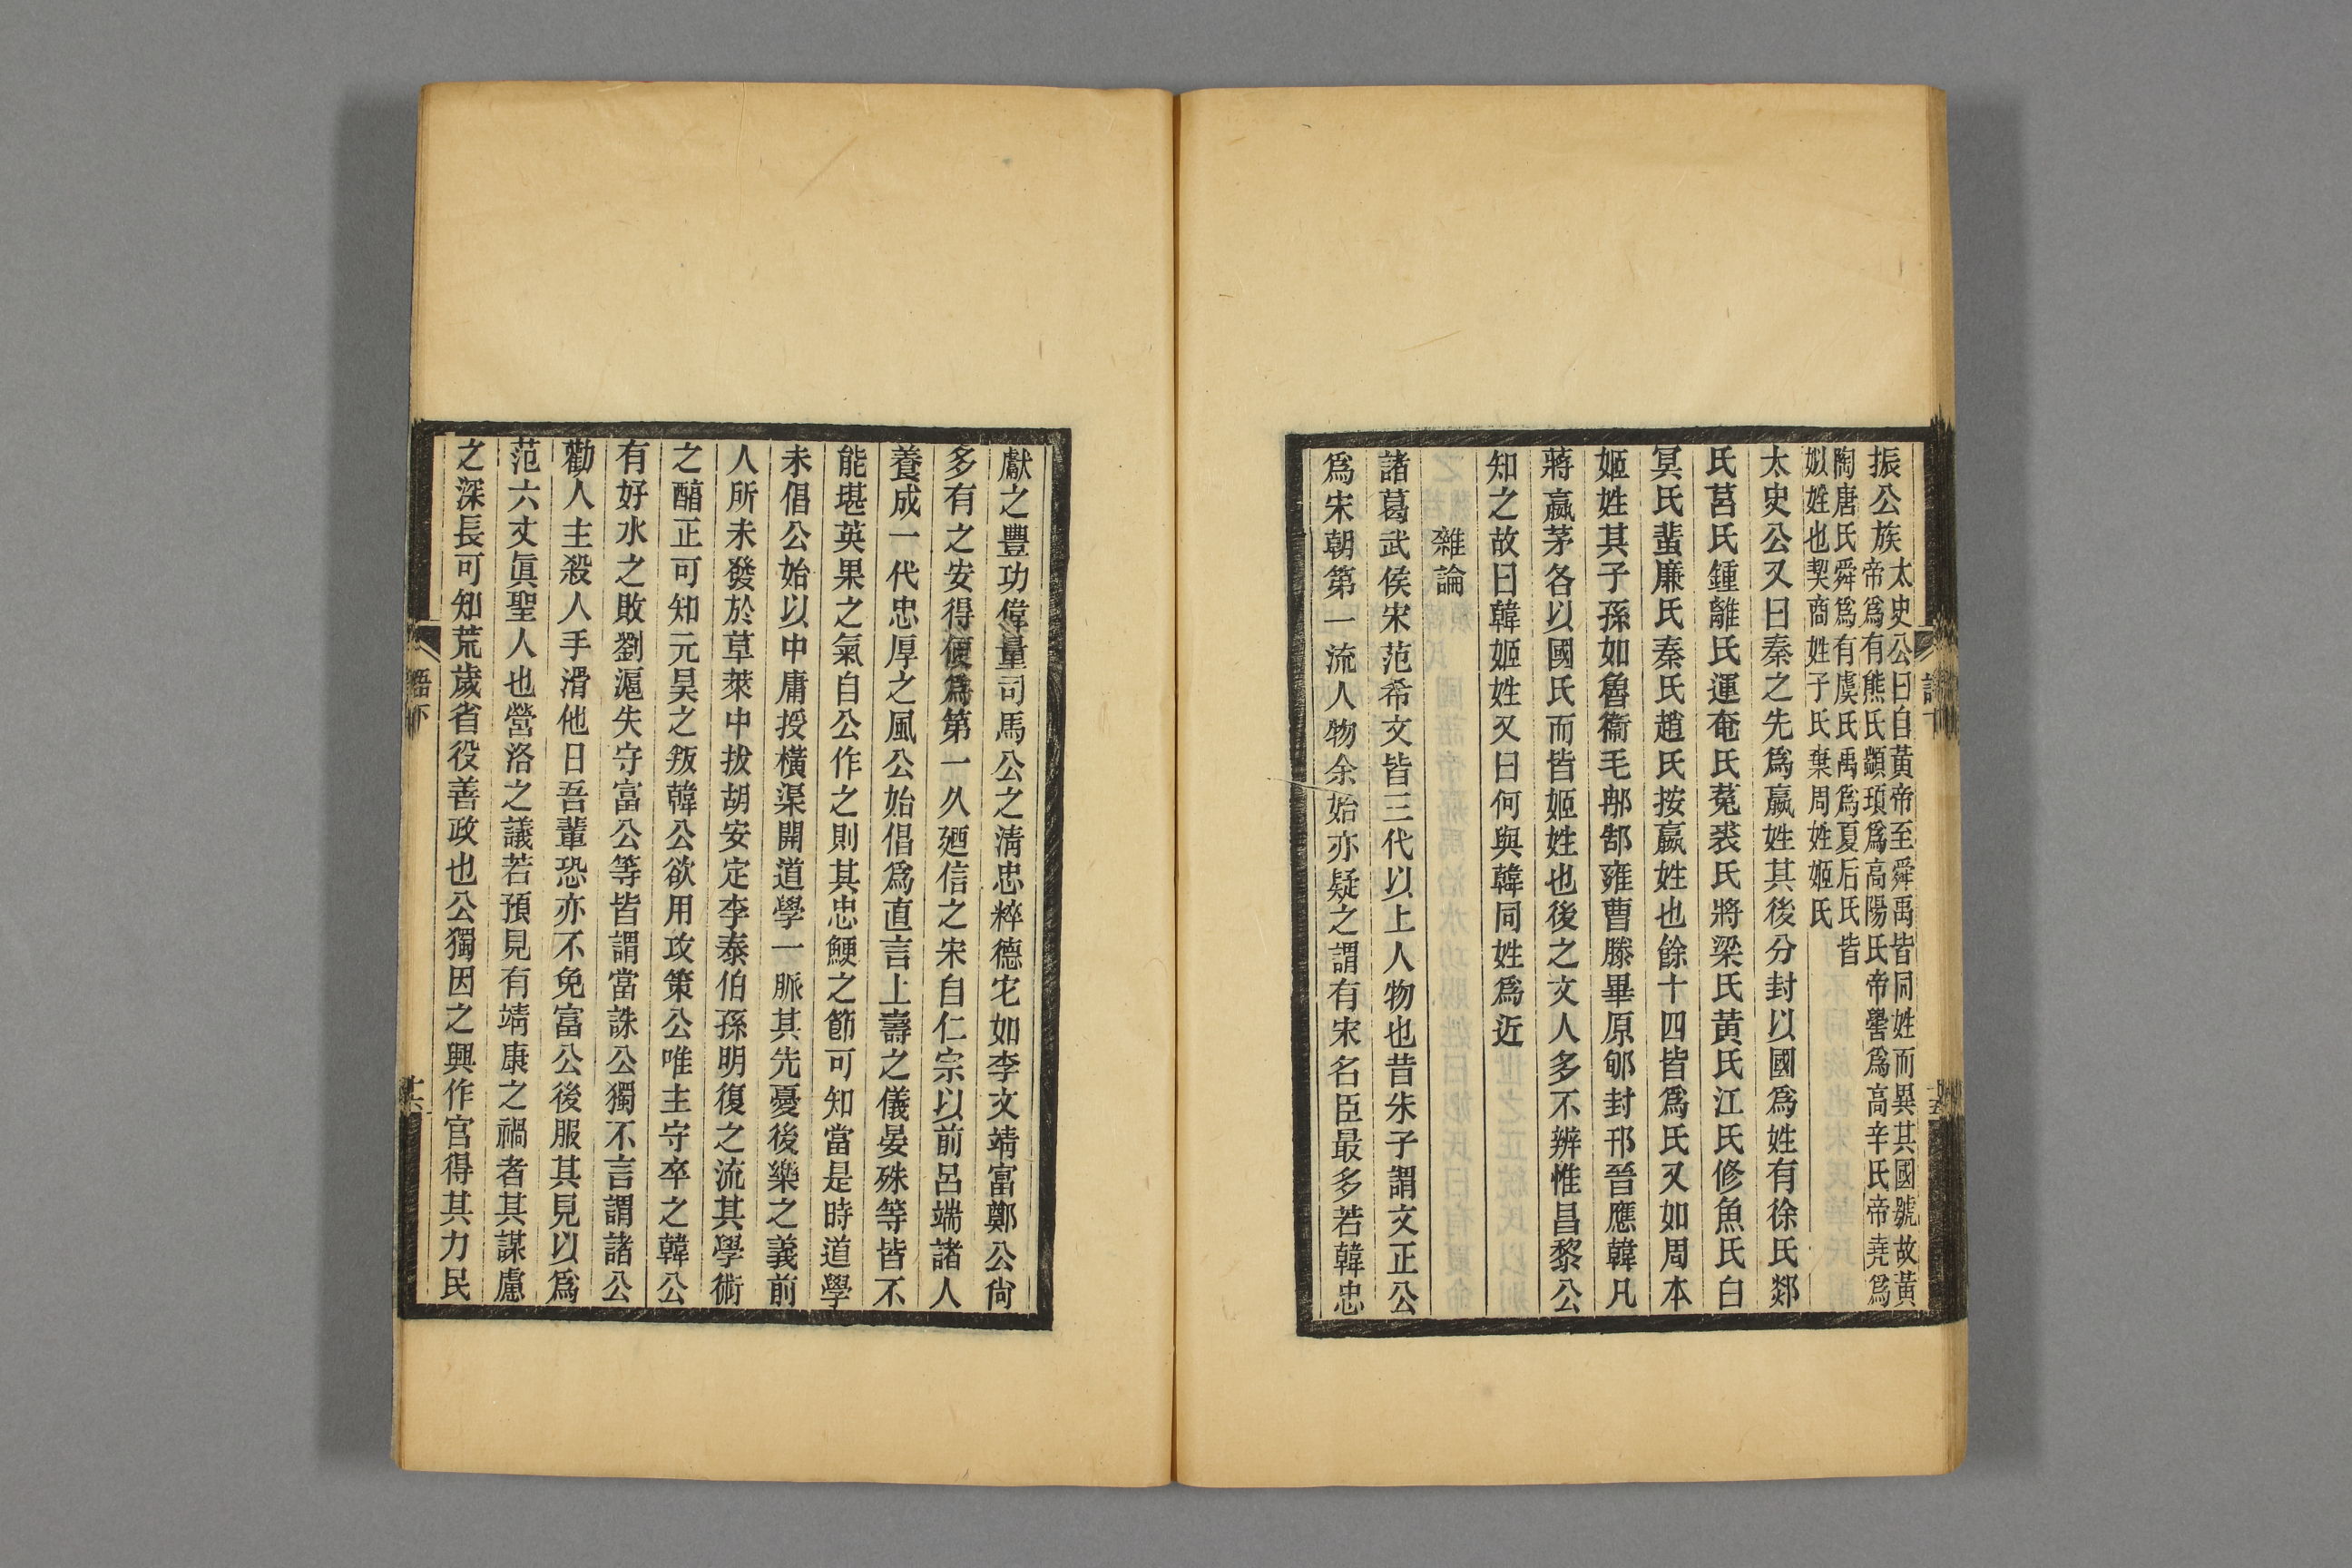 振公族太史公曰自黃帝至舜禹皆同姓而異其國號故黃
帝爲有熊氏顓頊爲高陽氏帝嚳爲高辛氏帝堯爲
陶唐氏舜爲有虞氏禹爲夏后氏皆
姒姓也契商姓子氏棄周姓姬氏
太史公又曰秦之先爲嬴姓其後分封以國爲姓有徐氏郯
氏莒氏鍾離氏運奄氏菟裘氏將梁氏黃氏江氏修魚氏白
冥氏蜚廉氏秦氏趙氏按嬴姓也餘十四皆爲氏又如周本
姬姓其子孫如魯衞毛郍郜雍曹滕畢原郇封邗晉應韓凡
蔣嬴茅各以國氏而皆姬姓也後之文人多不辨惟昌黎公
知之故曰韓姬姓又曰何與韓同姓爲近
雜論
諸葛武侯宋范希文皆三代以上人物也昔朱子謂文正公
爲宋朝第一流人物余始亦疑之謂有宋名臣最多若韓忠
獻之豐功偉量司馬公之淸忠粹德它如李文靖富鄭公尙
多有之安得便爲第一久廼信之宋自仁宗以前呂端諸人
養成一代忠厚之風公始倡爲直言上壽之儀晏殊等皆不
能堪英果之氣自公作之則其忠鯁之節可知當是時道學
未倡公始以中庸授橫渠開道學一脈其先憂後樂之義前
人所未發於草萊中拔胡安定李泰伯孫明復之流其學術
之醕正可知元昊之叛韓公欲用攻策公唯主守卒之韓公
有好水之敗劉滬失守富公等皆謂當誅公獨不言謂諸公
勸人主殺人手滑他日吾輩恐亦不免富公後服其見以爲
范六丈眞聖人也營洛之議若預見有靖康之禍者其謀慮
之深長可知荒歲省役善政也公獨因之興作官得其力民
語下
十六